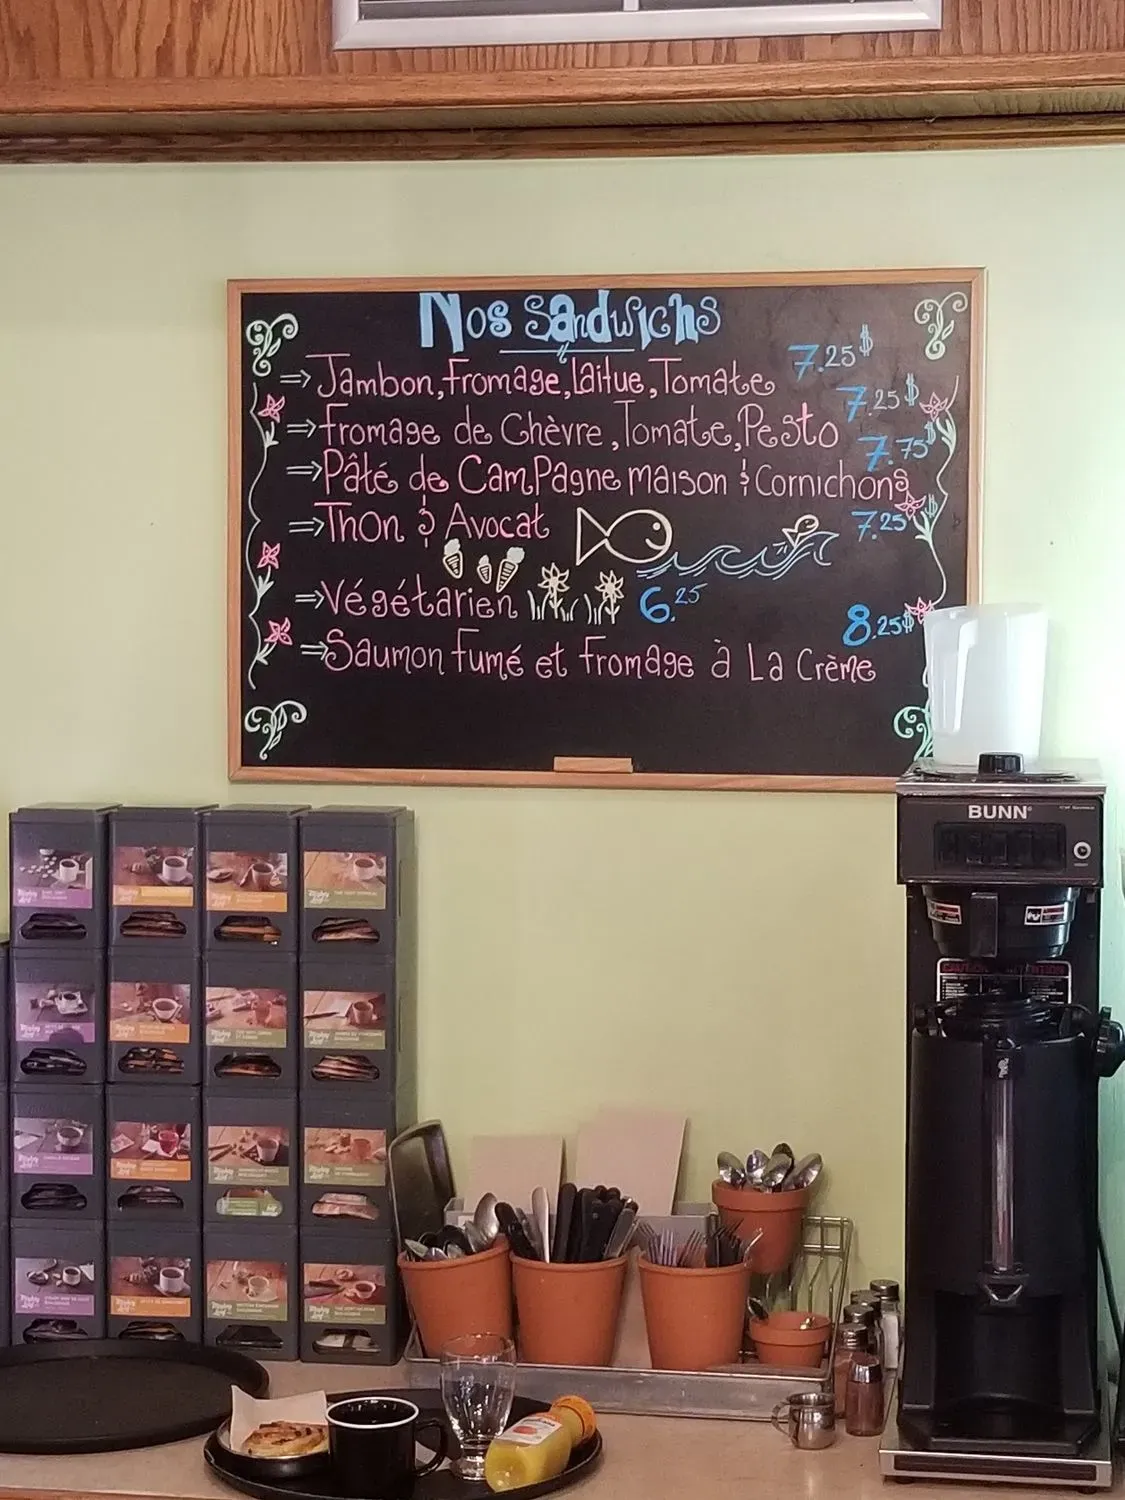 Nos Sandwichs
⇒ Jambon, fromage, Laitue, Tomate 7.25$
⇒ fromage de Chèvre, Tomate, Pesto 7.25$
⇒ Pâté de CamPagne maison & Cornichons 7.75$
⇒ Thon & Avocat 7.25$
⇒ Végétarien 6.25
⇒ Saumon fumé et fromage à La Crème 8.25$
BUNN
CAUTION ATTENTION